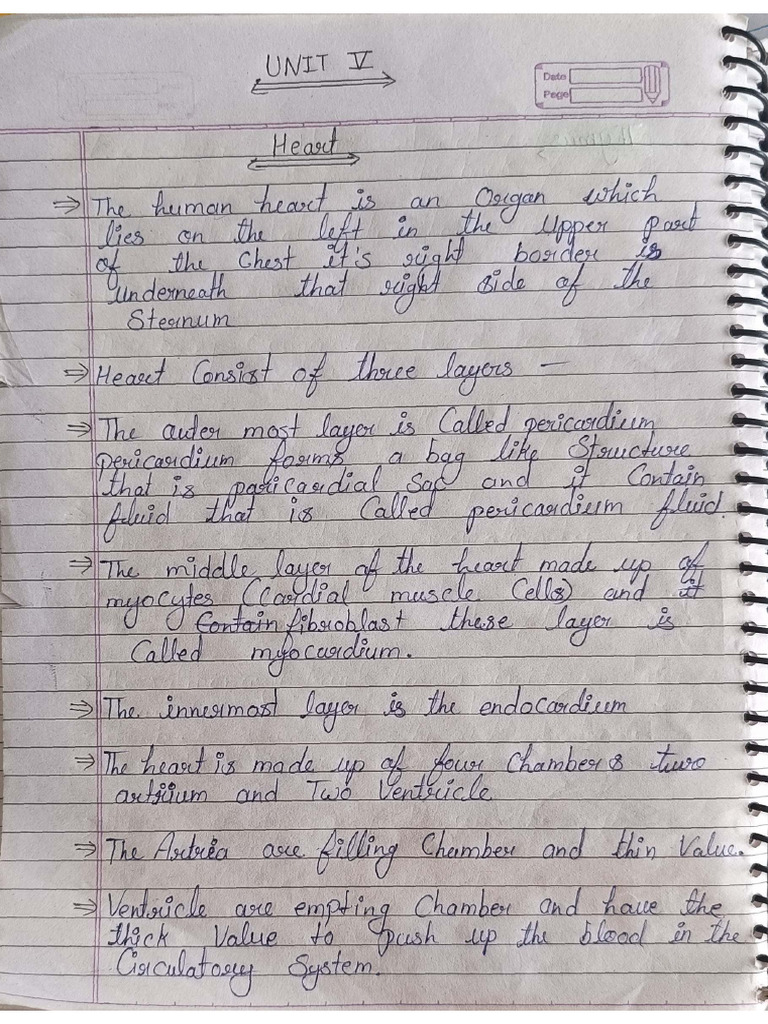 UNIT V
Date
Page
Heart
⇒ The human heart is an Organ which
lies on the left in the Upper part
of the Chest it's right border is
underneath that right side of the
Sternum
⇒ Heart Consist of three layers —
⇒ The outer most layer is Called pericardium
pericardium forms a bag like Structure
that is paricardial Sac and it Contain
fluid that is Called pericardium fluid.
⇒ The middle layer of the heart made up of
myocytes (Cardial muscle Cells) and it
Contain fibroblast these layer is
Called myocardium.
⇒ The innermost layer is the endocardium
⇒ The heart is made up of four Chambers two
artrium and Two Ventricle
⇒ The Artria are filling Chamber and thin Value.
⇒ Ventricle are empting Chamber and have the
thick Value to push up the blood in the
Circulatory System.